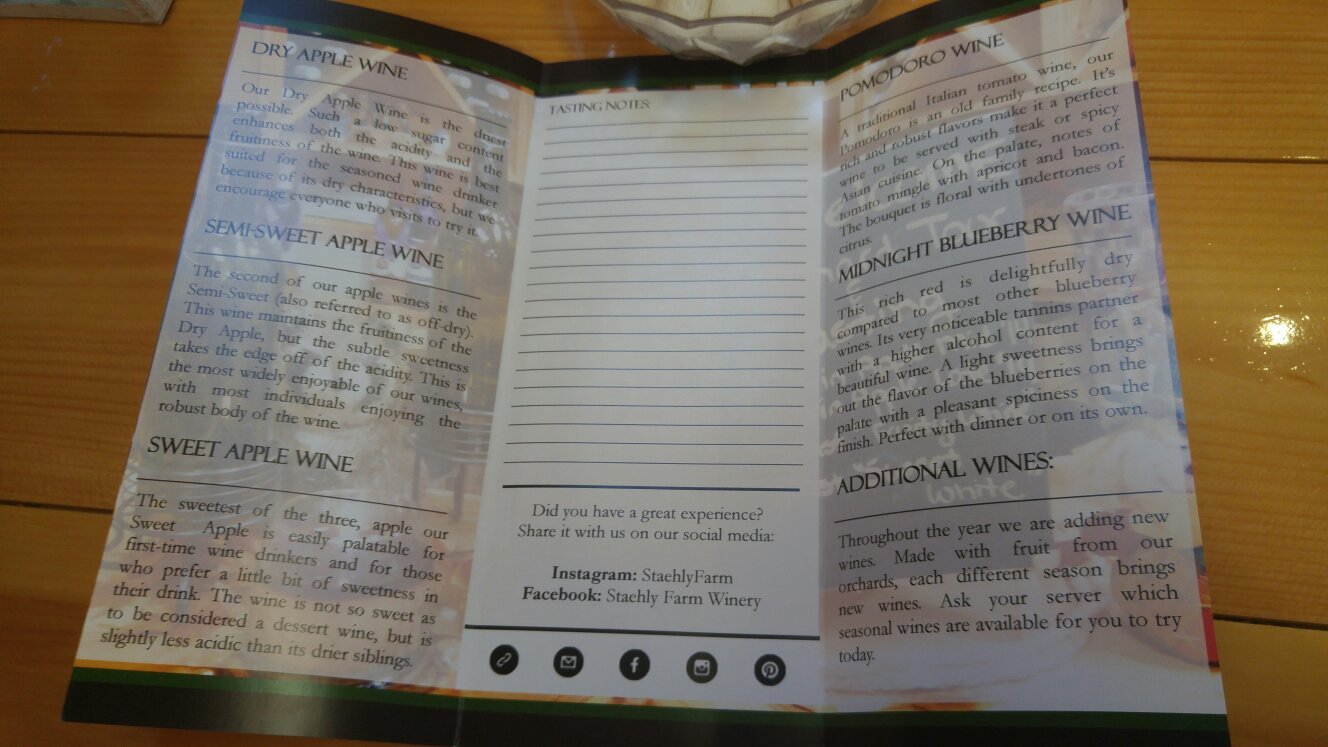 DRY APPLE WINE
Our Dry Apple Wine is the driest
possible. Such a low sugar content
enhances both the acidity and the
fruitiness of the wine. This wine is best
suited for the seasoned wine drinker
because of its dry characteristics, but we
encourage everyone who visits to try it.
SEMI-SWEET APPLE WINE
The second of our apple wines is the
Semi-Sweet (also referred to as off-dry).
This wine maintains the fruitiness of the
Dry Apple, but the subtle sweetness
takes the edge off of the acidity. This is
the most widely enjoyable of our wines,
with most individuals enjoying the
robust body of the wine.
SWEET APPLE WINE
The sweetest of the three, apple our
Sweet Apple is easily palatable for
first-time wine drinkers and for those
who prefer a little bit of sweetness in
their drink. The wine is not so sweet as
to be considered a dessert wine, but is
slightly less acidic than its drier siblings.
TASTING NOTES:
Did you have a great experience?
Share it with us on our social media:
Instagram: StaehlyFarm
Facebook: Staehly Farm Winery
POMODORO WINE
A traditional Italian tomato wine, our
Pomodoro is an old family recipe. It's
rich and robust flavors make it a perfect
wine to be served with steak or spicy
Asian cuisine. On the palate, notes of
tomato mingle with apricot and bacon.
The bouquet is floral with undertones of
citrus.
MIDNIGHT BLUEBERRY WINE
This rich red is delightfully dry
compared to most other blueberry
wines. Its very noticeable tannins partner
with a higher alcohol content for a
beautiful wine. A light sweetness brings
out the flavor of the blueberries on the
palate with a pleasant spiciness on the
finish. Perfect with dinner or on its own.
ADDITIONAL WINES:
Throughout the year we are adding new
wines. Made with fruit from our
orchards, each different season brings
new wines. Ask your server which
seasonal wines are available for you to try
today.
White